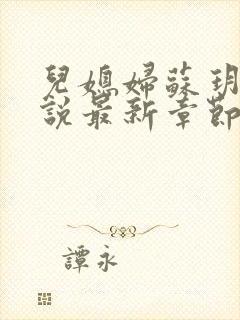 兒媳婦蘇玥
說最新章節
譚永